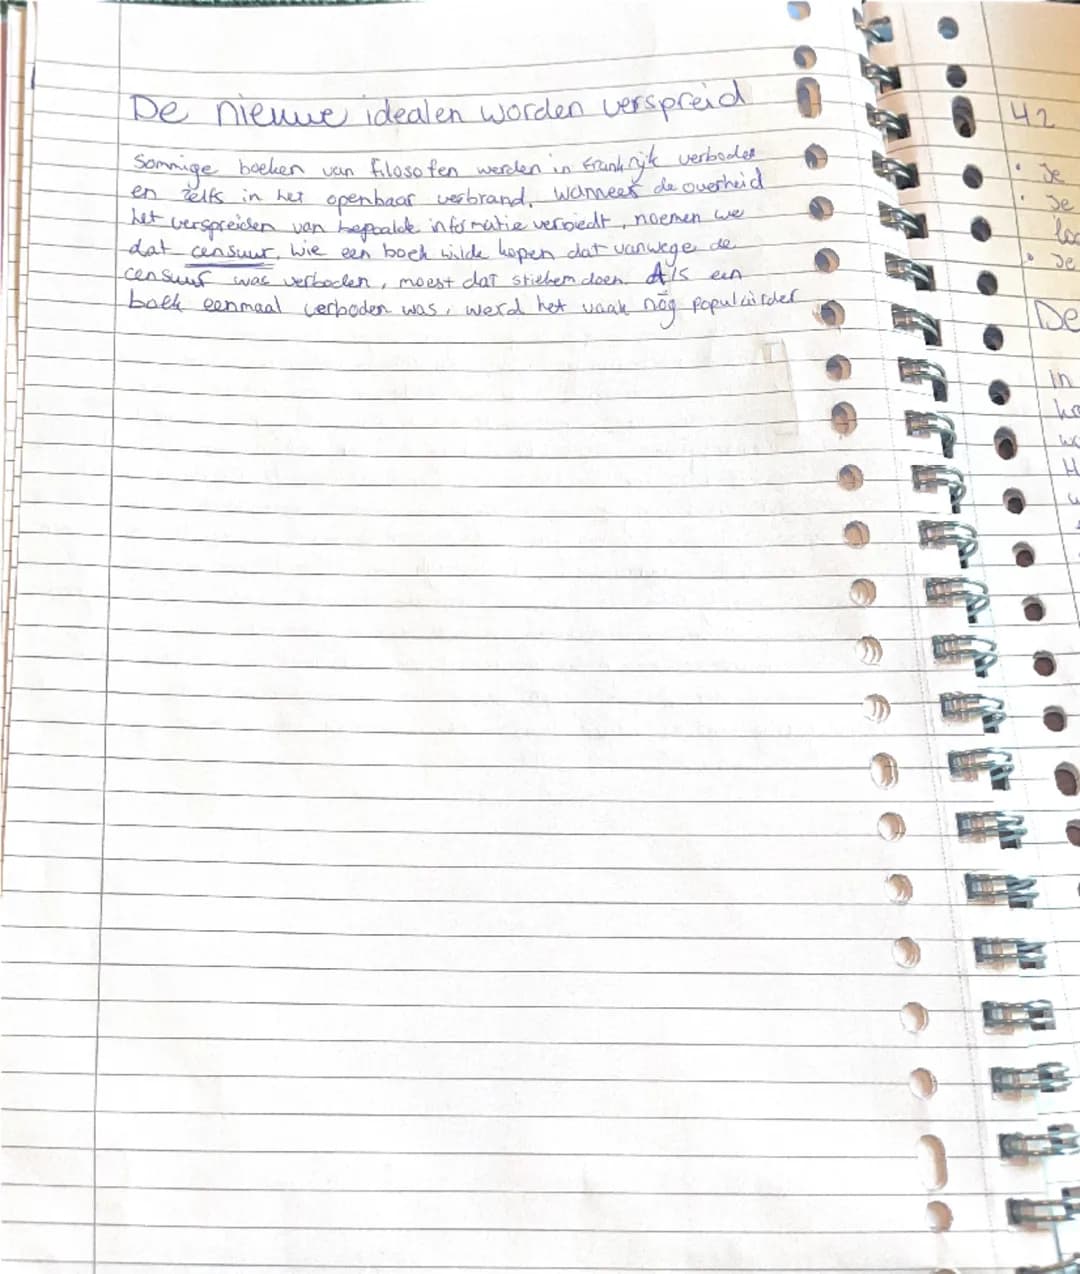 De nieuwe idealen worden verspreid
Sommige boeken van filosofen werden in Frankrijk verboden
en zelfs in het openbaar verbrand. Wanneer de overheid
het verspreiden van bepaalde informatie verbiedt, noemen we
dat censuur. Wie een boek wilde kopen dat vanwege de
censuur was verboden, moest dat stiekem doen. Als een
boek eenmaal verboden was, werd het vaak nóg populairder
42
• Je
• Je
• Je
De
in